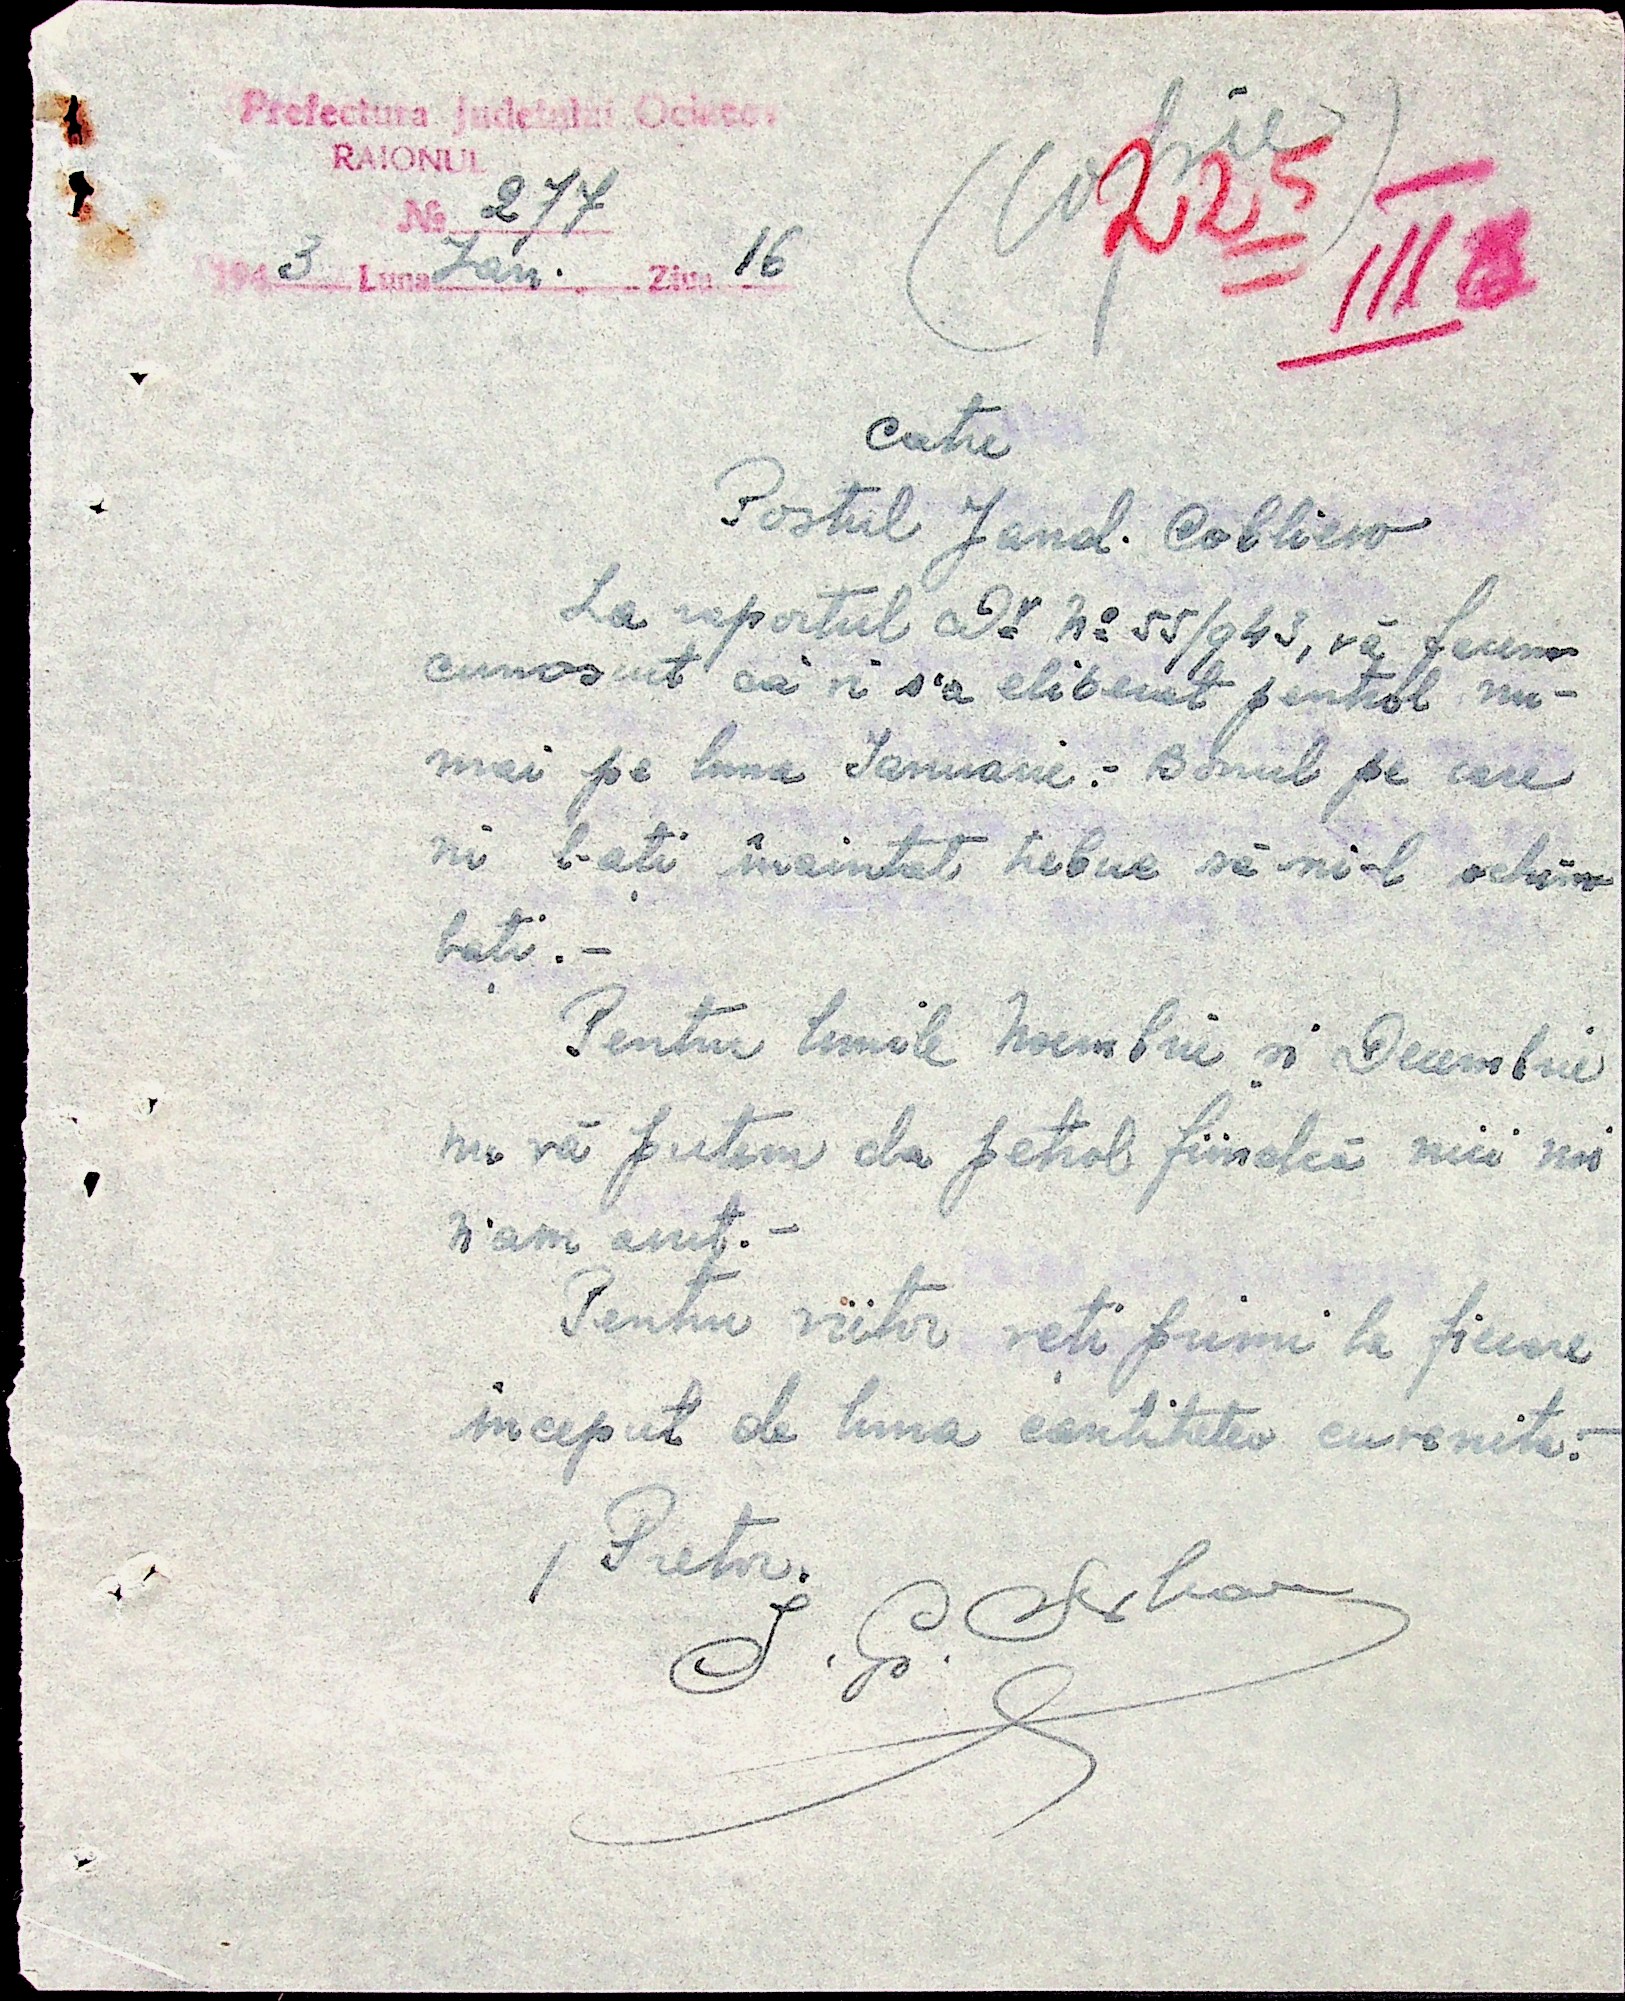 Prefectura Judetului Oceacov
RAIONUL
(Copie)
225
III
№ 277
1943 Luna Ian. Ziua 16
Catre
Postul Jand. Cobliewo
La raportul Dv. No 55/943, vă facem
cunoscut că vi s'a eliberat pentrol nu-
mai pe luna Ianuarie.- Bonul pe care
ni l-ați înaintat trebue să ni-l schim
bați.-
Pentru lunile Noembrie și Decembrie
nu vă putem da petrol fiindcă nici noi
n'am avut.-
Pentru viitor veți primi la fiecare
început de luna cantitatea cuvenita.-
/ Pretor.
I. G. Serban